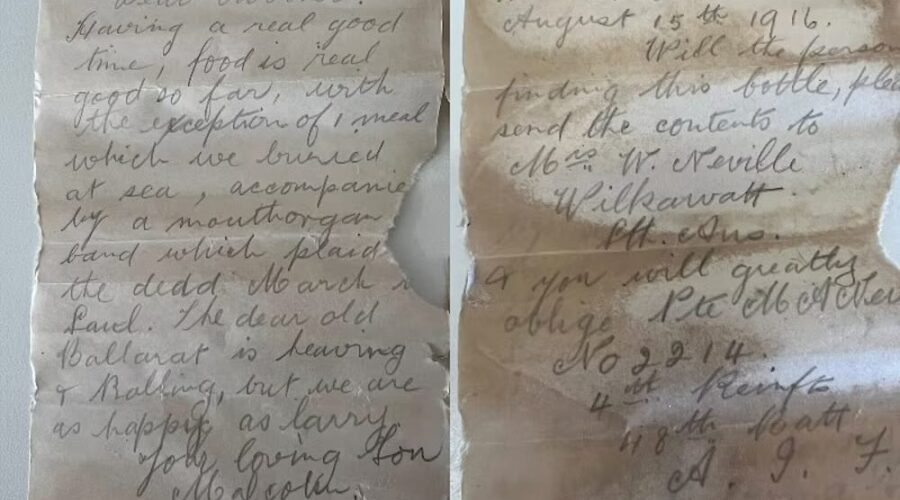 Having a real good
time, food is real
good so far, with
the exception of 1 meal
which we buried
at sea, accompanie
by a mouthorgan
band which plaid
the dedd March
Saul. The dear old
Ballarat is heaving
& Rolling, but we are
as happy as larry
Your loving Son
Malcolm.
August 15th 1916.
Will the person
finding this bottle, plea
send the contents to
Mrs W. Neville
Wilkawatt.
Sth. Aus.
& you will greatly
oblige Pte M A Nev
No 2214.
4th Reinfts
48th Batt
A. I. F.